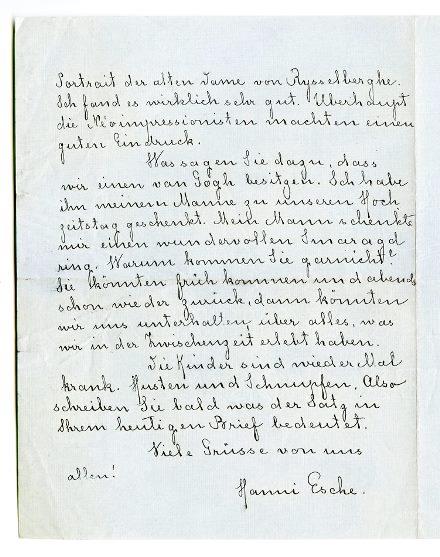 Portrait der alten Dame von Rysselberghe.
Ich fand es wirklich sehr gut. Überhaupt
die Néoimpressionisten machten einen
guten Eindruck.
Was sagen Sie dazu, dass
wir einen van Gogh besitzen. Ich habe
ihn meinem Manne zu unseren Hoch
zeitstag geschenkt. Mein Mann schenkte
mir einen wundervollen Smaragd
ring. Warum kommen Sie garnicht?
Sie könnten früh kommen und abends
schon wieder zurück, dann könnten
wir uns unterhalten über alles, was
wir in der Zwischenzeit erlebt haben.
Die Kinder sind wieder Mal
krank. Husten und Schnupfen. Also
schreiben Sie bald was der Satz in
Ihrem heutigen Brief bedeutet.
Viele Grüsse von uns
allen!
Hanni Esche.